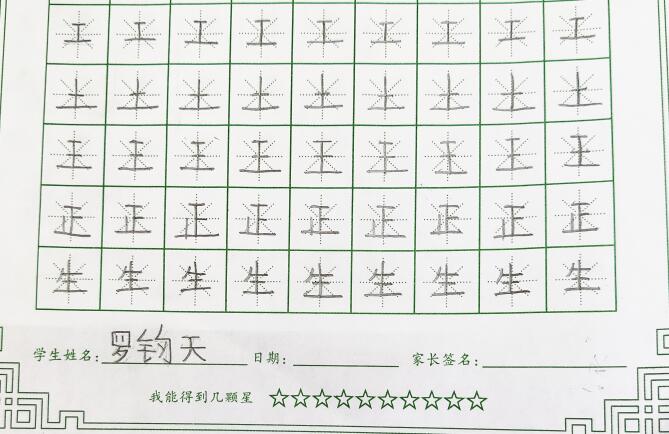 工工工工工工工工工
土土土土土土土土土
王王王王王王王王王
正正正正正正正正正
生生生生生生生生生
学生姓名:罗钧天 日期: 家长签名:
我能得到几颗星 ☆☆☆☆☆☆☆☆☆☆